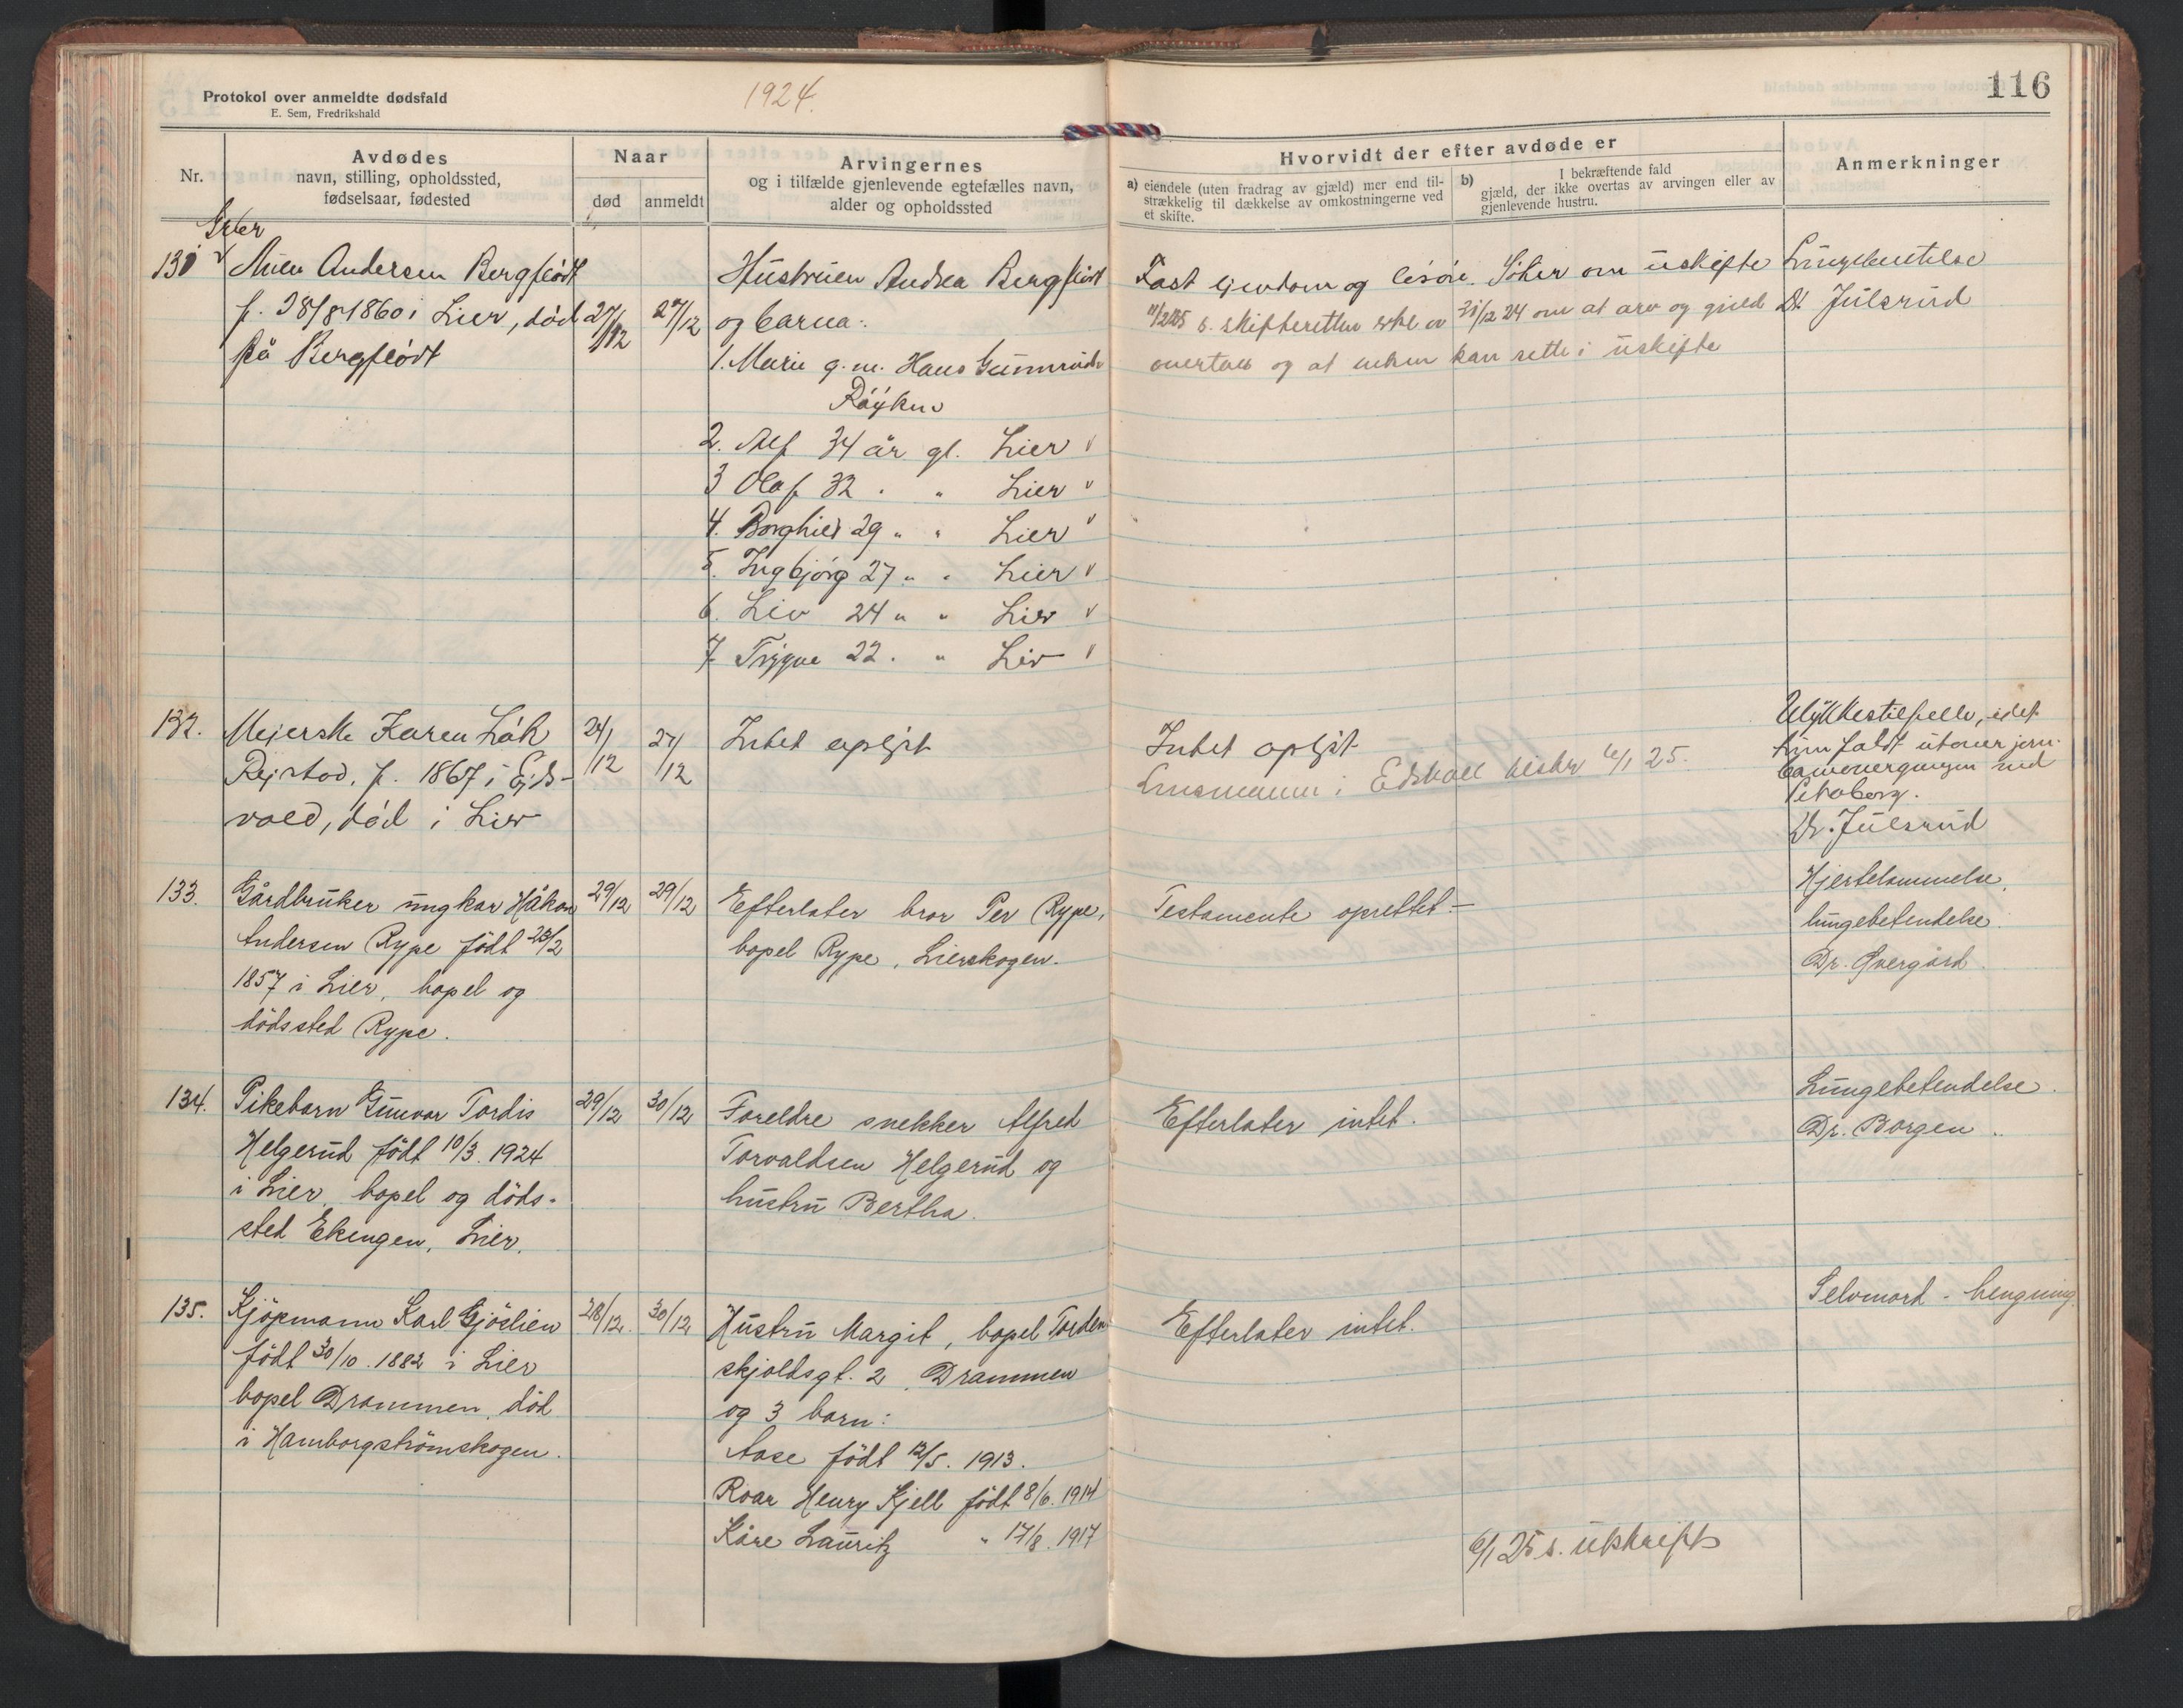 Protokol over anmeldte dødsfald
E. Sem, Fredrikshald
1924.
116
Nr.
Avdødes
navn, stilling, opholdssted,
fødselsaar, fødested
Naar
død
anmeldt
Arvingernes
og i tilfælde gjenlevende egtefælles navn,
alder og opholdssted
Hvorvidt der efter avdøde er
a) eiendele (uten fradrag av gjæld) mer end til-
strækkelig til dækkelse av omkostningerne ved
et skifte.
b) I bekræftende fald
gjæld, der ikke overtas av arvingen eller av
gjenlevende hustru.
Anmerkninger
131
Andersen Bergflödt
f. 28/8 1860 i Lier, död
på Bergflödt
27/12
27/12
Hustruen Andrea Bergflödt
og barna:
1. Marie g.m. Hans Gunnerud
Röyken
2. Alf 34 år gl. Lier
3 Olaf 32 " " Lier
4. Borghild 29 " " Lier
5. Ingbjörg 27 " " Lier
6. Liv 24 " " Lier
7 Trygve 22 " " Lier
Fast eiendom og lösöre. Söker om uskifte
11/2 25 s. skifteretten erkl av 31/12 24 om at arv og gjeld
overtas og at enken kan sitte i uskifte
Lungebetelse
Dr. Julsrud
132.
Meierske Karen Lök
Rejstad, f. 1867 i Eids-
vold, död i Lier
24/12
27/12
Intet oplyst
Intet oplyst
Lensmannen i Edsvoll tilskr 6/1 25.
Ulykkestilfelle, idet
hun faldt utover jern-
baneovergangen ved
Dr. Julsrud
133.
Gårdbruker ungkar Håkon
Andersen Rype födt 23/2
1857 i Lier, bopel og
dödssted Rype.
29/12
29/12
Efterlater bror Per Rype,
bopel Rype, Lierskogen.
Testamente oprettet.—
Hjertelammelse,
lungebetendelse.
Dr. Övergård.
134.
Pikebarn Gunvor Tordis
Helgerud födt 10/3. 1924
i Lier, bopel og döds-
sted Ekengen, Lier.
29/12
30/12
Foreldre snekker Alfred
Torvaldsen Helgerud og
hustru Bertha.
Efterlater intet.
Lungebetendelse.
Dr. Borgen.
135.
Kjöpmann Karl Gjöslien
födt 30/10. 1882 i Lier
bopel Drammen, död
i Hamborgströmskogen.
28/12.
30/12
Hustru Margit, bopel Torden-
skjoldsgt. 2, Drammen
og 3 barn:
Aase födt 12/5. 1913.
Roar Henry Kjell födt 8/6. 1914
Kåre Lauritz " 17/8. 1917
Efterlater intet.
6/1 25 s. utskrift
Selvmord - hengning.